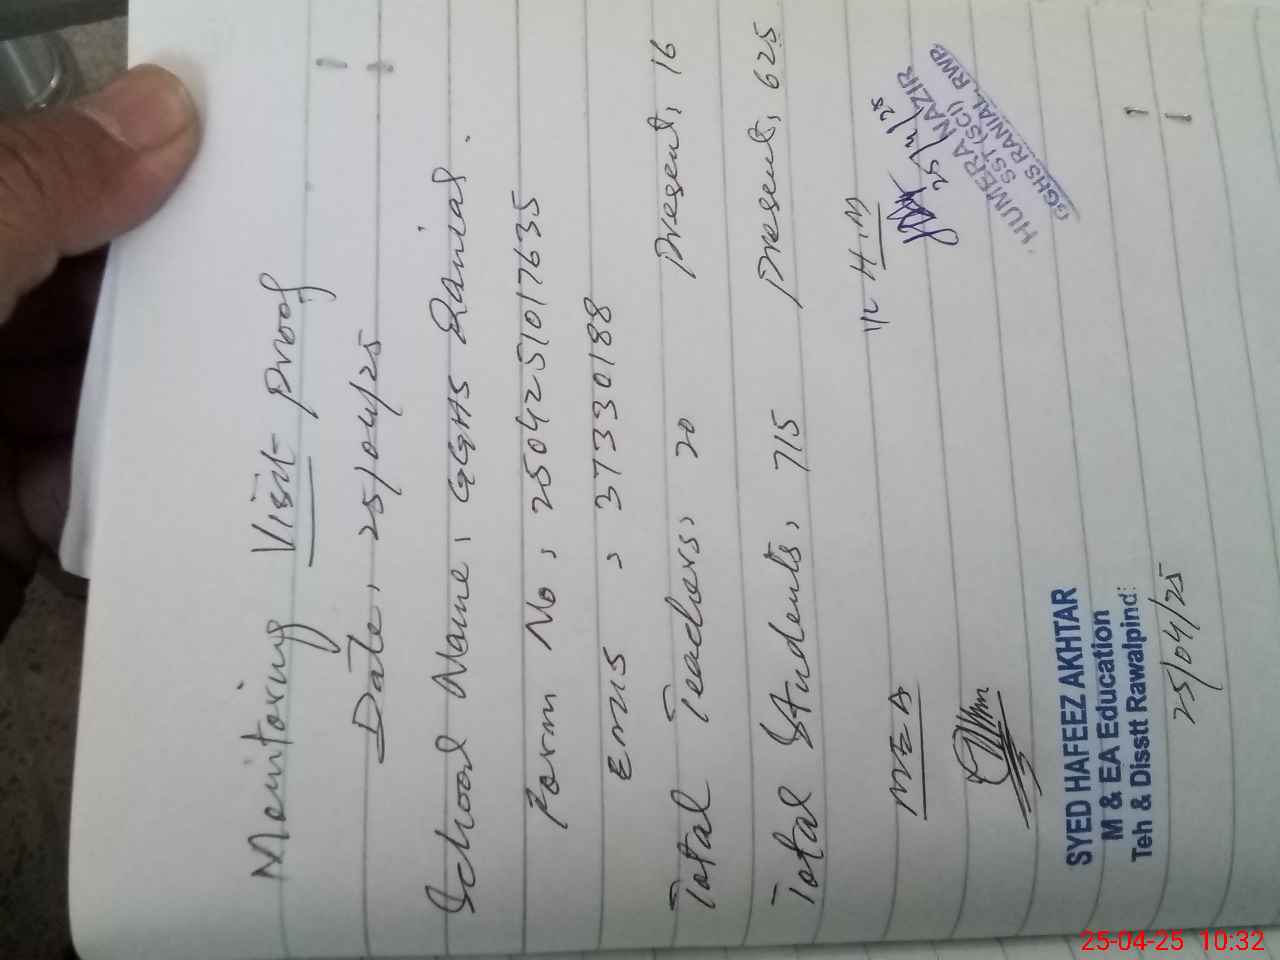 Monitoring Visit Proof
Date, 25/04/25
School Name, GGHS Ranial.
Form No, 2504251017635
EMIS , 37330188
Total Teachers, 20 Present, 16
Total Students, 715 Present, 625
MEA
I/C H.M
25/4/25
HUMERA NAZIR
SST (SCI)
GGHS RANIAL, RWP.
SYED HAFEEZ AKHTAR
M & EA Education
Teh & Disstt Rawalpind:
25/04/25
25-04-25 10:32